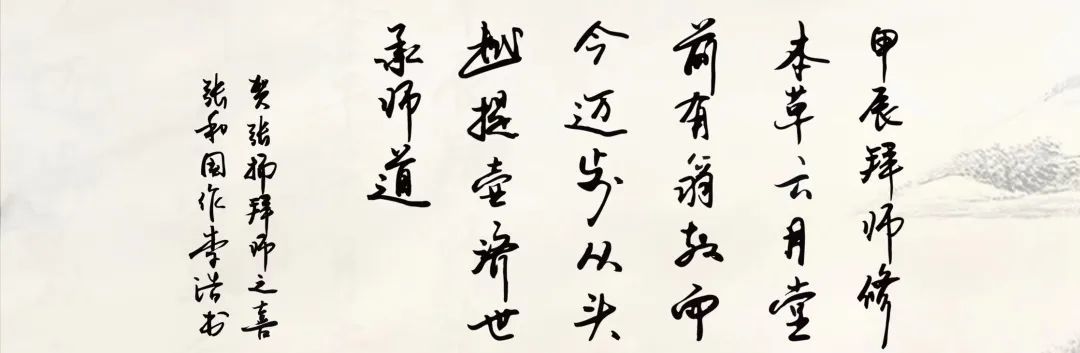 甲辰拜师修
本草云月堂
前有翁教而
今迈步从头
越提壶济世
承师道
贺张扬拜师之喜
张和国作李浩书